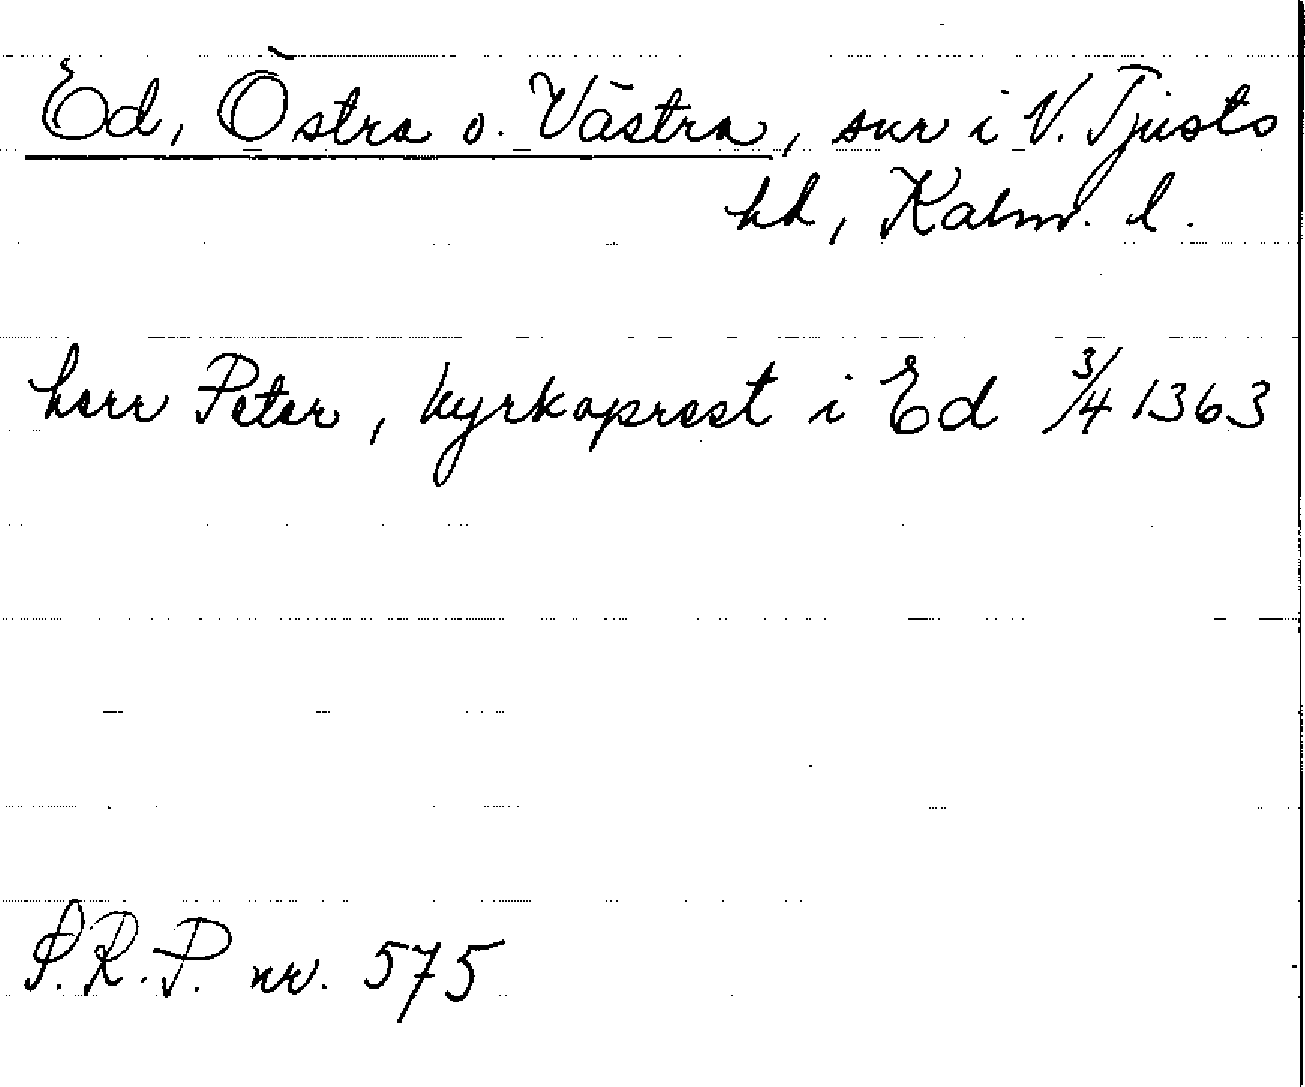 Ed, Östra o. Västra, snr i V. Tjusts
hd, Kalm. l.
herr Peter, kyrkoprest i Ed 3/4 1363
S.R.P. nr. 575